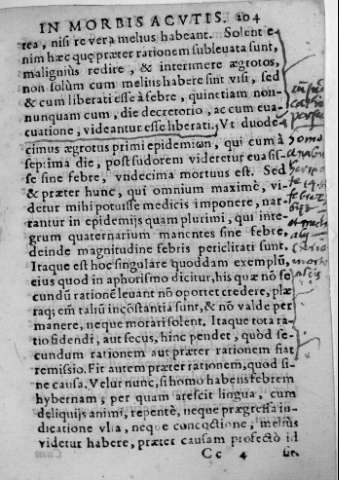 IN MORBIS ACVTIS. 204
rea, nisi re vera melius habeant. Solent e
nim hæc quę præter rationem subleuata sunt,
malignius redire, & interimere ægrotos,
non solùm cum melius habere sint visi, sed
& cum liberati esse à febre, quinetiam non-
nunquam cum, die decretorio, ac cum eua-
cuatione, videantur esse liberati. Vt duode
cimus ægrotus primi epidemiωn, qui cum à
septima die, post sudorem videretur euasis-
se sine febre, vndecima mortuus est. Sed
& præter hunc, qui omnium maximè, vi-
detur mihi potuisse medicis imponere, nar-
rantur in epidemijs quam plurimi, qui inte-
grum quaternarium manentes sine febre,
deinde magnitudine febris periclitati sunt.
Itaque est hoc singulare quoddam exemplũ,
eius quod in aphorismo dicitur, his quæ nõ se
cundũ rationẽ leuant nõ oportet credere, plæ
raq; em̃ taliũ incõstantia sunt, & nõ valde per
manere, neque morari solent. Itaque tota ra-
tio fidendi, aut secus, hinc pendet, quòd se-
cundum rationem aut præter rationem fiat
remissio. Fit autem præter rationem, quod si-
ne causa. Velut nunc, si homo habens febrem
hybernam, per quam arescit lingua, cum
deliquijs animi, repentè, neque prægressa in-
dicatione vlla, neque concoctione, melius
videtur habere, præter causam profectò id
Cc 4